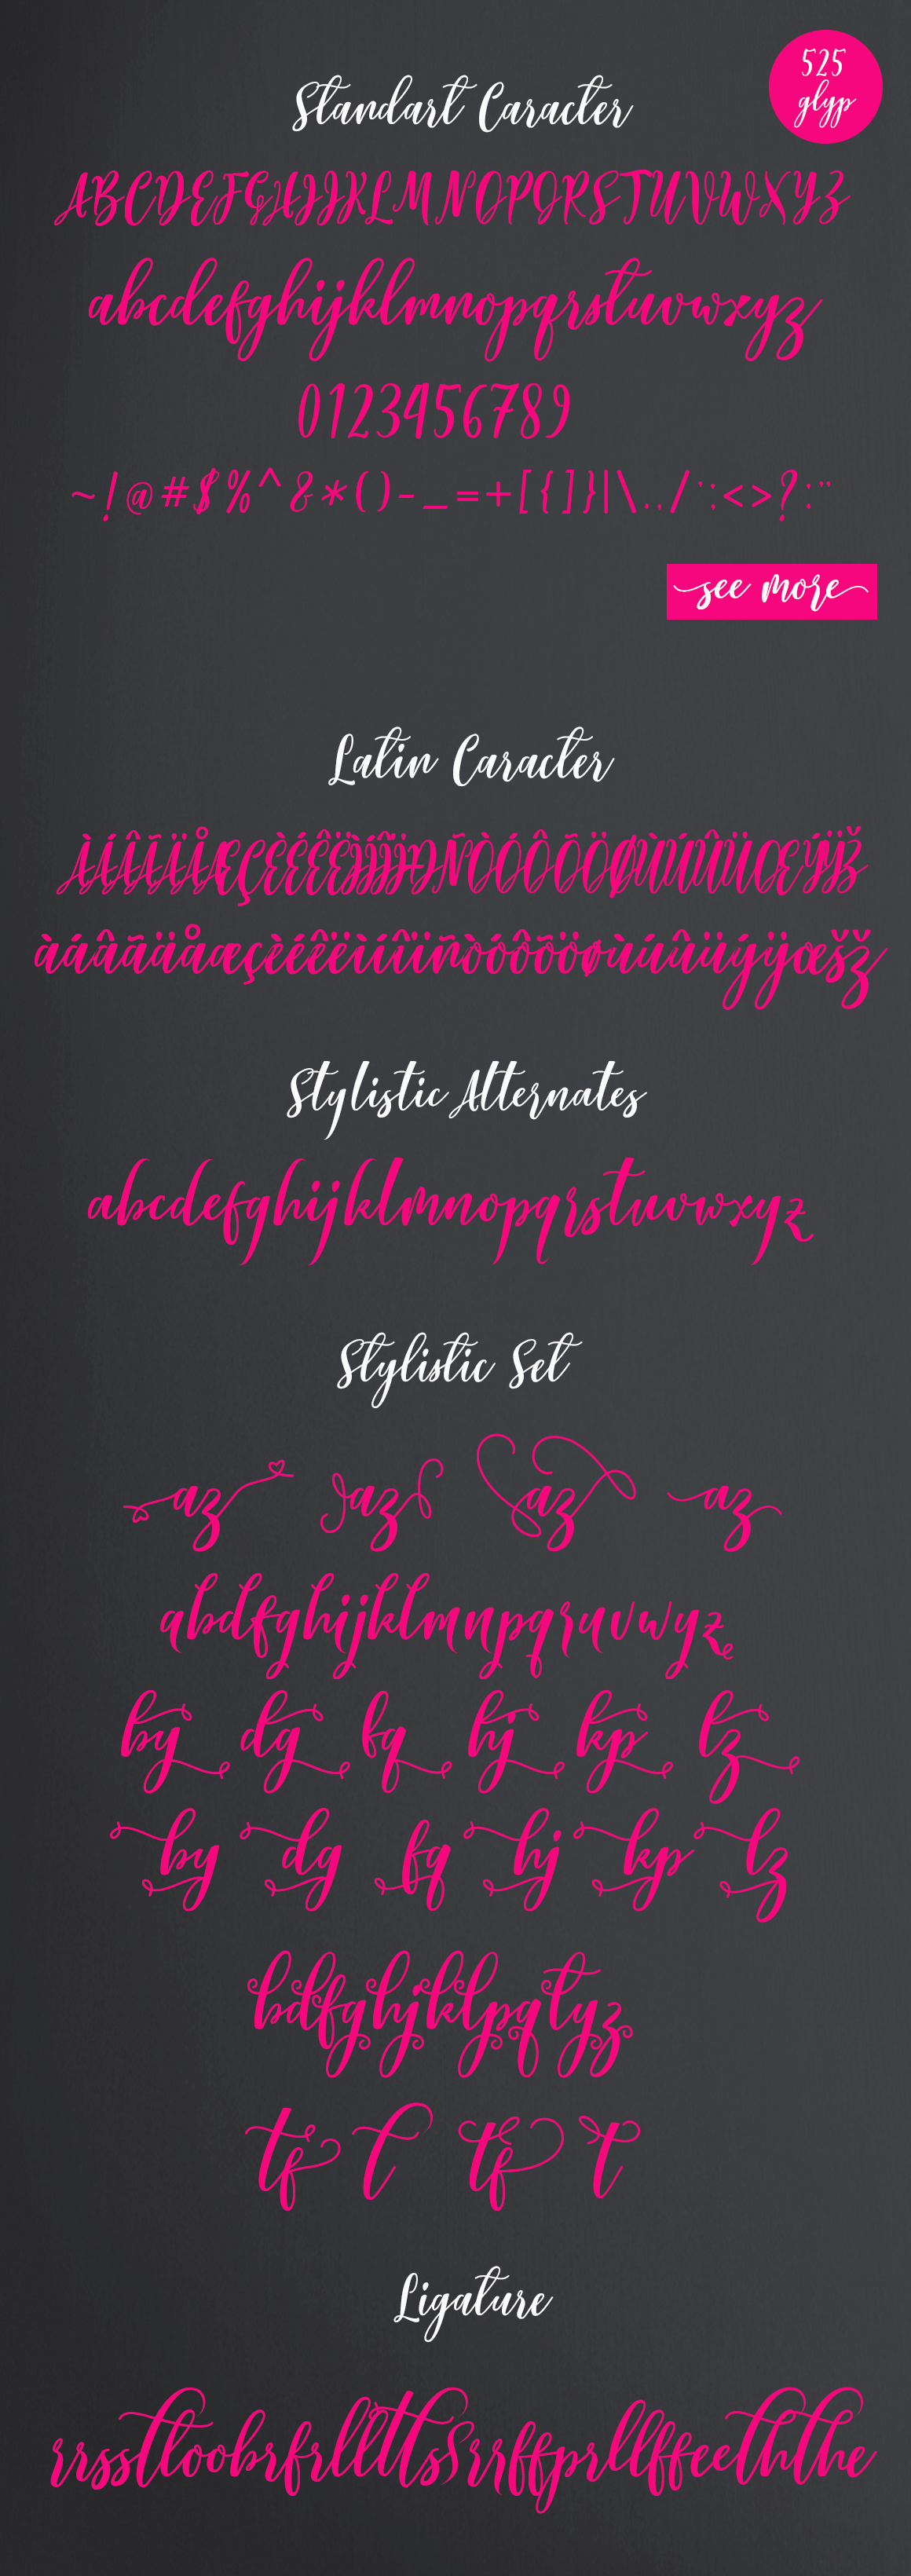 525
glyp
Standart Caracter
ABCDEFGHIJKLMNOPQRSTUVWXYZ
abcdefghijklmnopqrstuvwxyz
0123456789
~!@#$%^&*()-_=+[{]}|\../¨:<>?:¨
see more
Latin Caracter
ÀÁÂÃÄÅÆÇÈÉÊËÌÍÎÏÐÑÒÓÔÕÖØÙÚÛÜŒÝŸŽ
àáâãäåæçèéêëìíîïñòóôõöøùúûüýÿœšž
Stylistic Alternates
abcdefghijklmnopqrstuvwxyz
Stylistic Set
az az az az
abdfghijklmnpqruvwyz
by dg fq hj kp lz
by dg fq hj kp lz
bdfghjklpqtyz
tf t tf t
Ligature